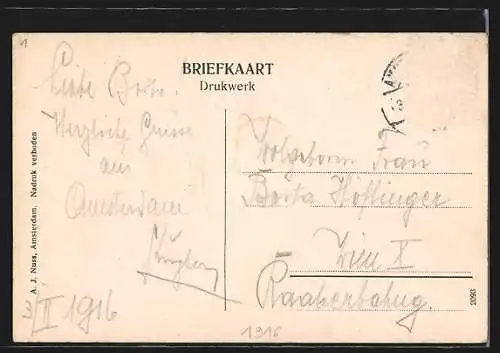 1
BRIEFKAART
Drukwerk
Liebe Berta.
Herzliche Grüsse
aus
Amsterdam
3/II 1916
Frau
Berta Höflinger
Wien X
Raaberbahng.
1916
A. J. Nuss, Amsterdam. Nadruk verboden
2093